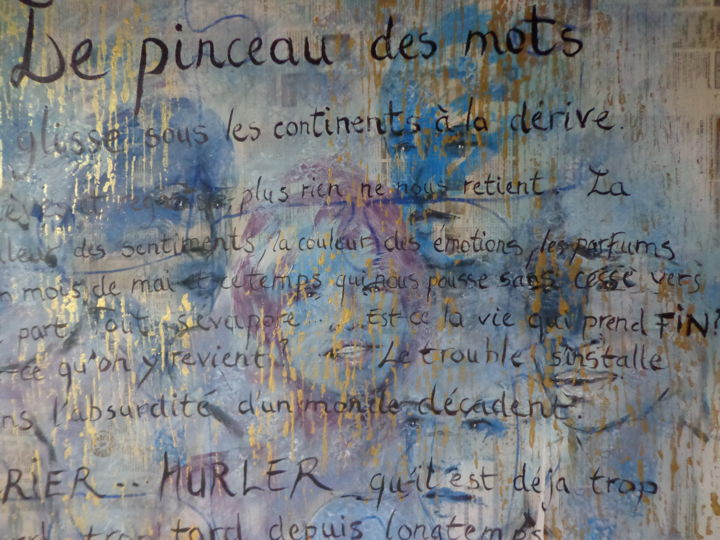 Le pinceau des mots
glisse sous les continents à la dérive.
plus rien ne nous retient. La
des sentiments, la couleur des émotions, les parfums
mois de mai et ce temps qui nous pousse sans cesse vers
part. Tout s'évapore... Est ce la vie qui prend FIN?
-ce qu'on y revient? Le trouble s'installe
l'absurdité d'un monde décadent.
RIER... HURLER qu'il est déjà trop
trop tard depuis longtemps